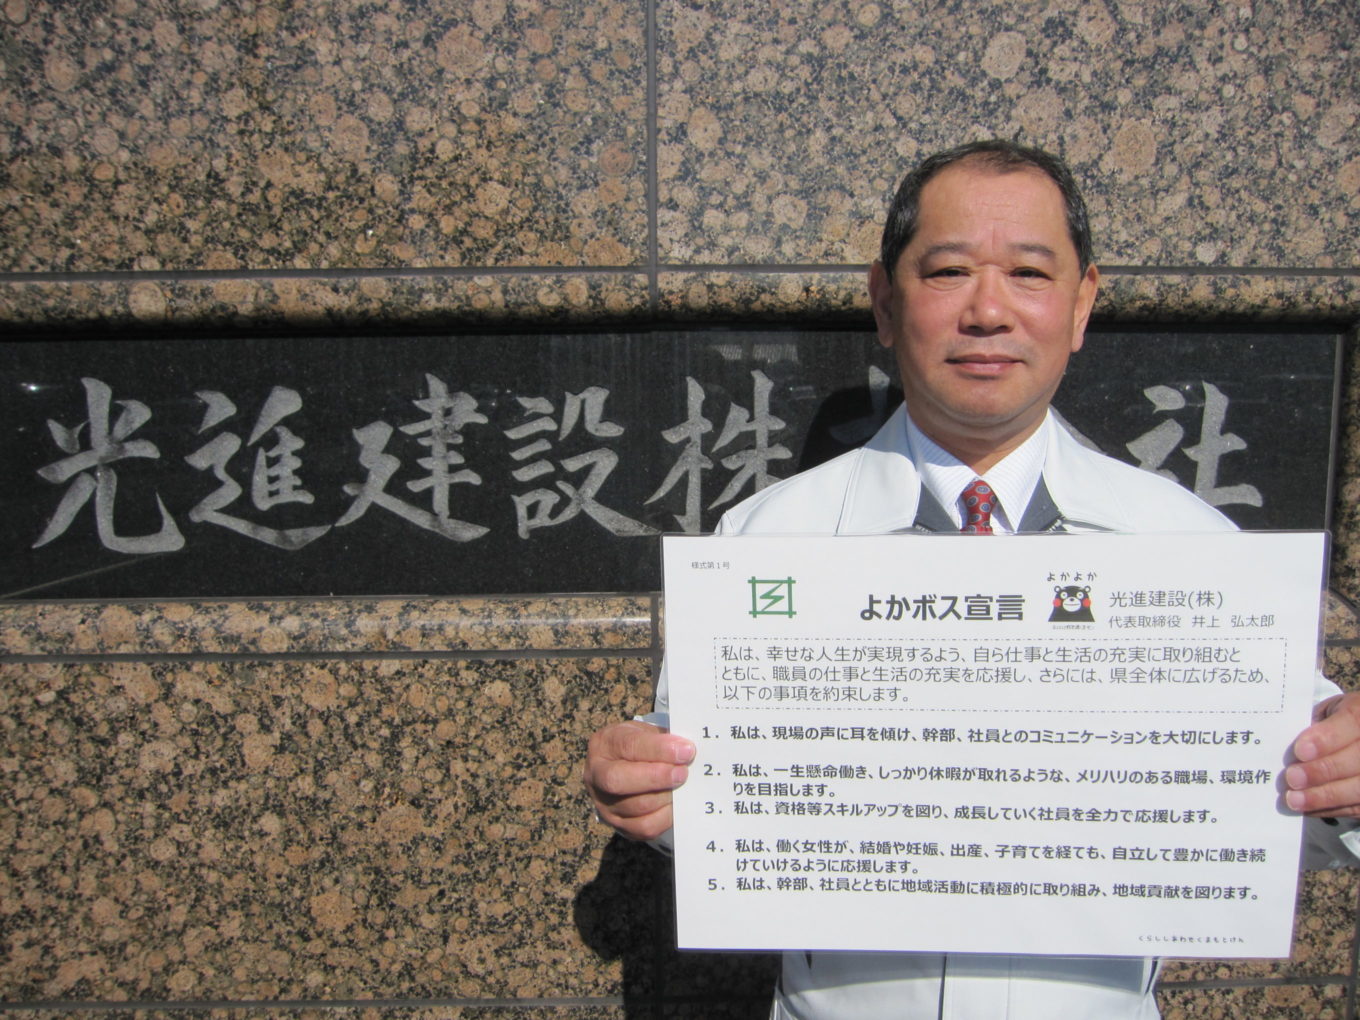 光進建設株 社
様式第1号
よかボス宣言
よかよか
光進建設(株)
代表取締役 井上 弘太郎
私は、幸せな人生が実現するよう、自ら仕事と生活の充実に取り組むと
ともに、職員の仕事と生活の充実を応援し、さらには、県全体に広げるため、
以下の事項を約束します。
1. 私は、現場の声に耳を傾け、幹部、社員とのコミュニケーションを大切にします。
2. 私は、一生懸命働き、しっかり休暇が取れるような、メリハリのある職場、環境作
りを目指します。
3. 私は、資格等スキルアップを図り、成長していく社員を全力で応援します。
4. 私は、働く女性が、結婚や妊娠、出産、子育てを経ても、自立して豊かに働き続
けていけるように応援します。
5. 私は、幹部、社員とともに地域活動に積極的に取り組み、地域貢献を図ります。
くらししあわせくまもとけん